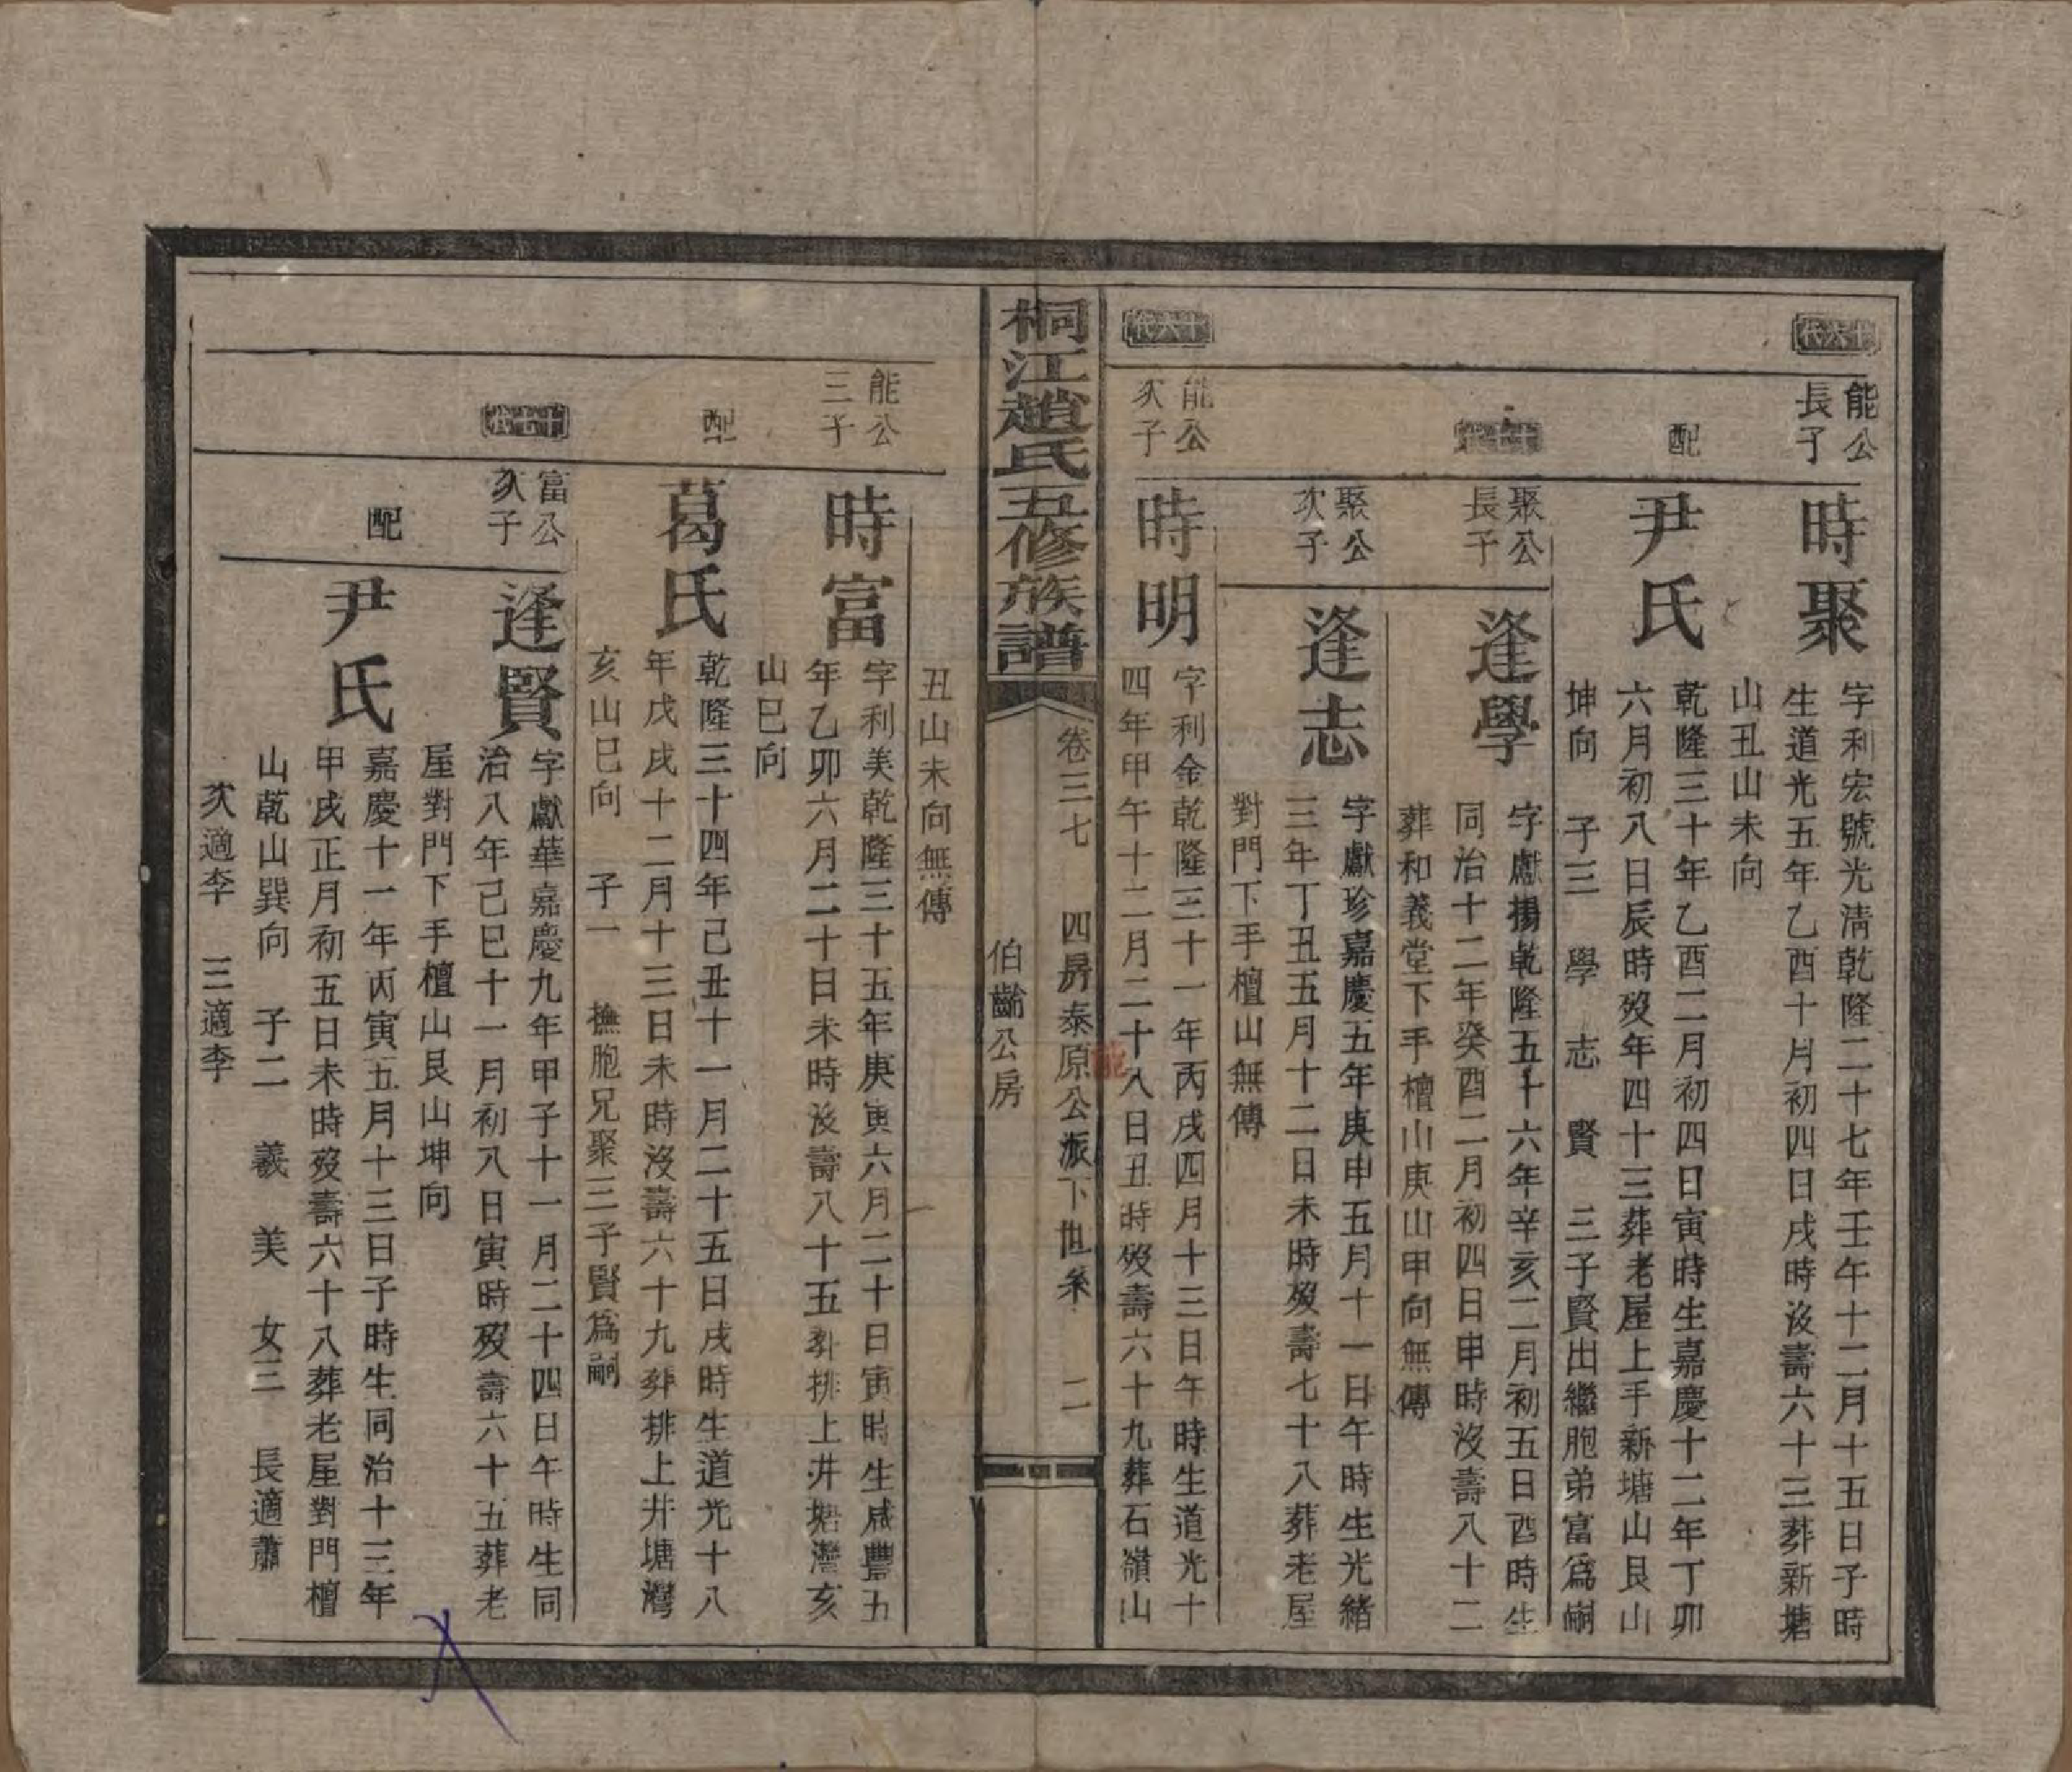 十六代
能公
長子
時聚
字利宏號光淸乾隆二十七年壬午十二月十五日子時
生道光五年乙酉十月初四日戌時沒壽六十三葬新塘
山丑山未向
配
尹氏
乾隆三十年乙酉二月初四日寅時生嘉慶十二年丁卯
六月初八日辰時歿年四十三葬老屋上手新塘山艮山
坤向 子三 學 志 賢 三子賢出繼胞弟富爲嗣
聚公
長子
逢學
字獻揚乾隆五十六年辛亥二月初五日酉時生
同治十二年癸酉二月初四日申時沒壽八十二
葬和義堂下手檀山庚山甲向無傳
聚公
次子
逢志
字獻珍嘉慶五年庚申五月十一日午時生光緒
三年丁丑五月十二日未時歿壽七十八葬老屋
對門下手檀山無傳
十六代
能公
次子
時明
字利金乾隆三十一年丙戌四月十三日午時生道光十
四年甲午十二月二十八日丑時歿壽六十九葬石嶺山
桐江趙氏五修族譜
卷三七 四房泰原公派下世系 二
伯齡公房
丑山未向無傳
能公
三子
時富
字利美乾隆三十五年庚寅六月二十日寅時生咸豐五
年乙卯六月二十日未時沒壽八十五葬排上井塘灣亥
山巳向
配
葛氏
乾隆三十四年己丑十一月二十五日戌時生道光十八
年戊戌十二月十三日未時沒壽六十九葬排上井塘灣
亥山巳向 子一 撫胞兄聚三子賢爲嗣
富公
次子
逢賢
字獻華嘉慶九年甲子十一月二十四日午時生同
治八年己巳十一月初八日寅時歿壽六十五葬老
屋對門下手檀山艮山坤向
配
尹氏
嘉慶十一年丙寅五月十三日子時生同治十三年
甲戌正月初五日未時歿壽六十八葬老屋對門檀
山乾山巽向 子二 義 美 女三 長適蕭
次適李 三適李